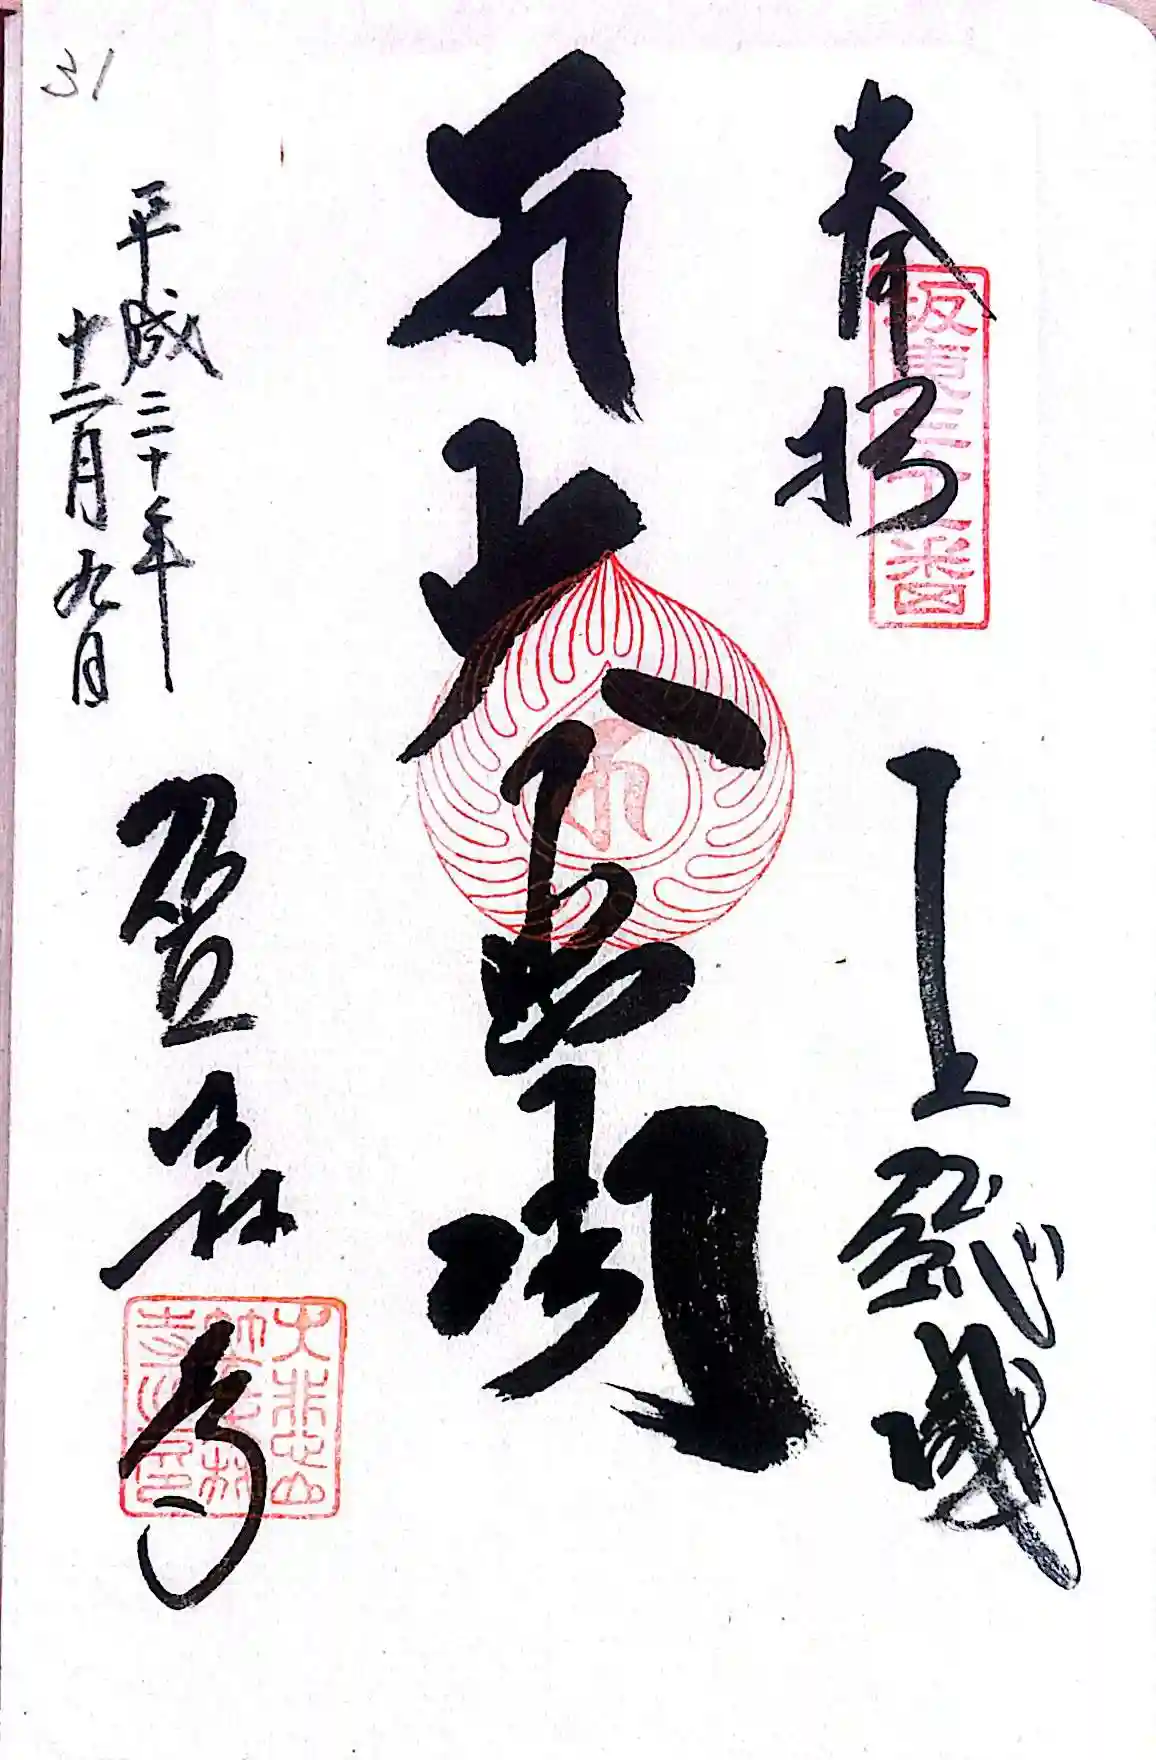 31
奉拝
坂東三十一番
上総国
大悲殿
平成三十年
十二月九日
笠森寺
大悲山
笠森
寺之印